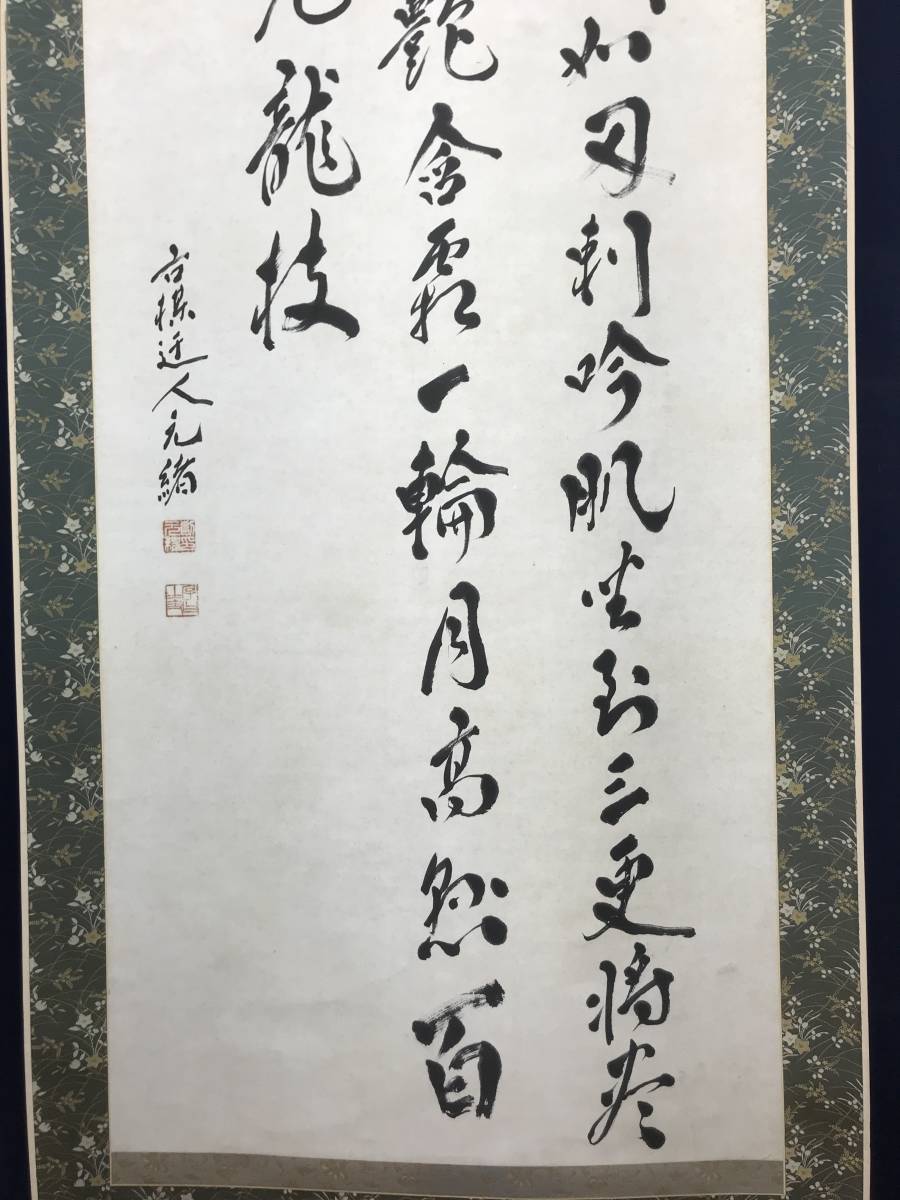 如刃刺吟肌坐到三更将尽
艶含霜一輪月高懸百
龍枝
古楳迂人元緒